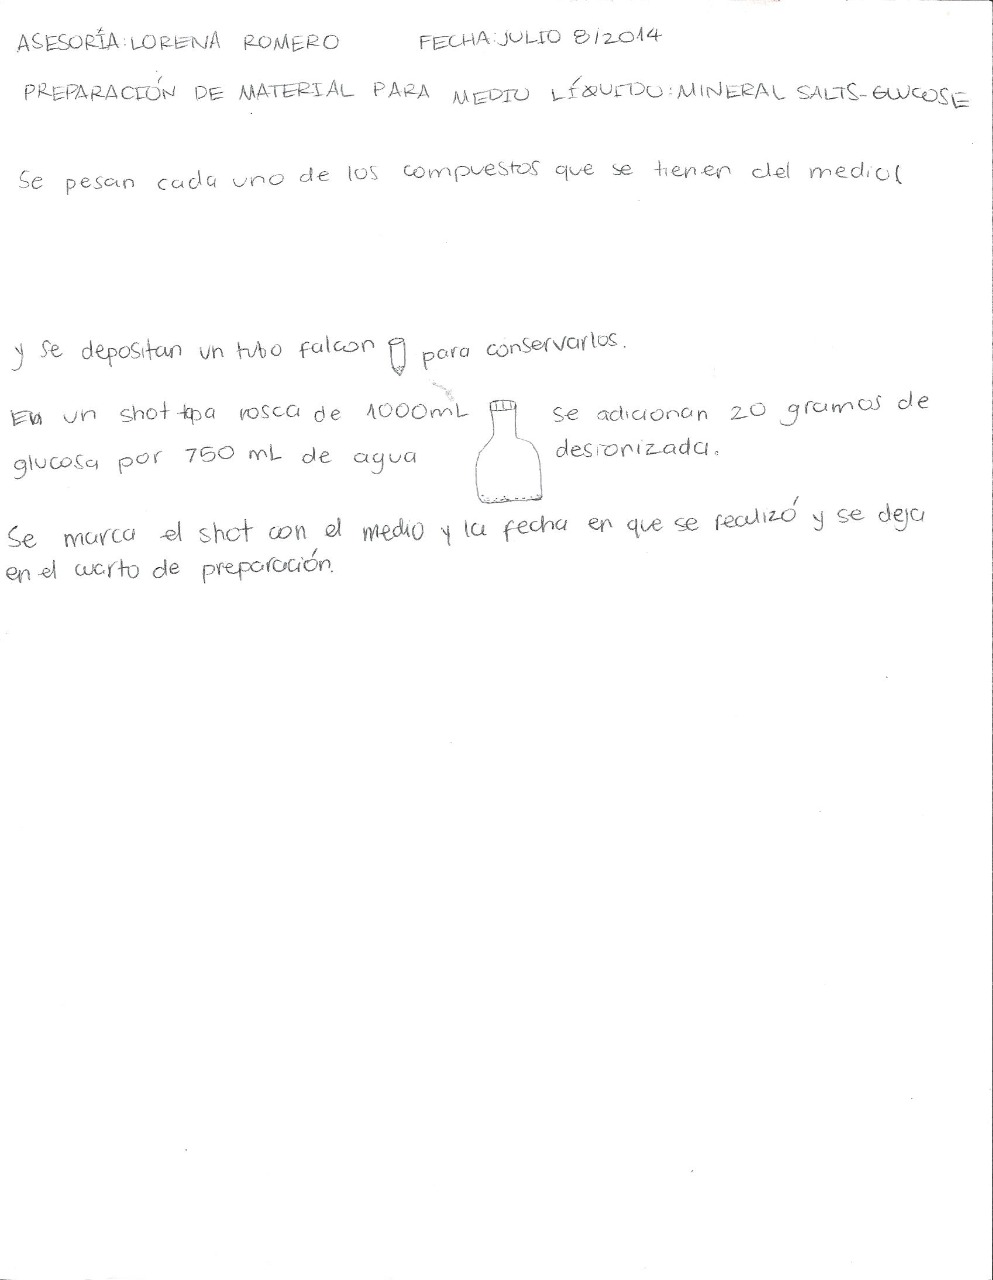 ASESORÍA: LORENA ROMERO FECHA: JULIO 8/2014
PREPARACIÓN DE MATERIAL PARA MEDIO LÍQUIDO: MINERAL SALTS-GLUCOSE
Se pesan cada uno de los compuestos que se tienen del medio(
y se depositan un tubo falcon para conservarlos.
En un shot tapa rosca de 1000mL se adicionan 20 gramos de
glucosa por 750 mL de agua desionizada.
Se marca el shot con el medio y la fecha en que se realizó y se deja
en el cuarto de preparación.